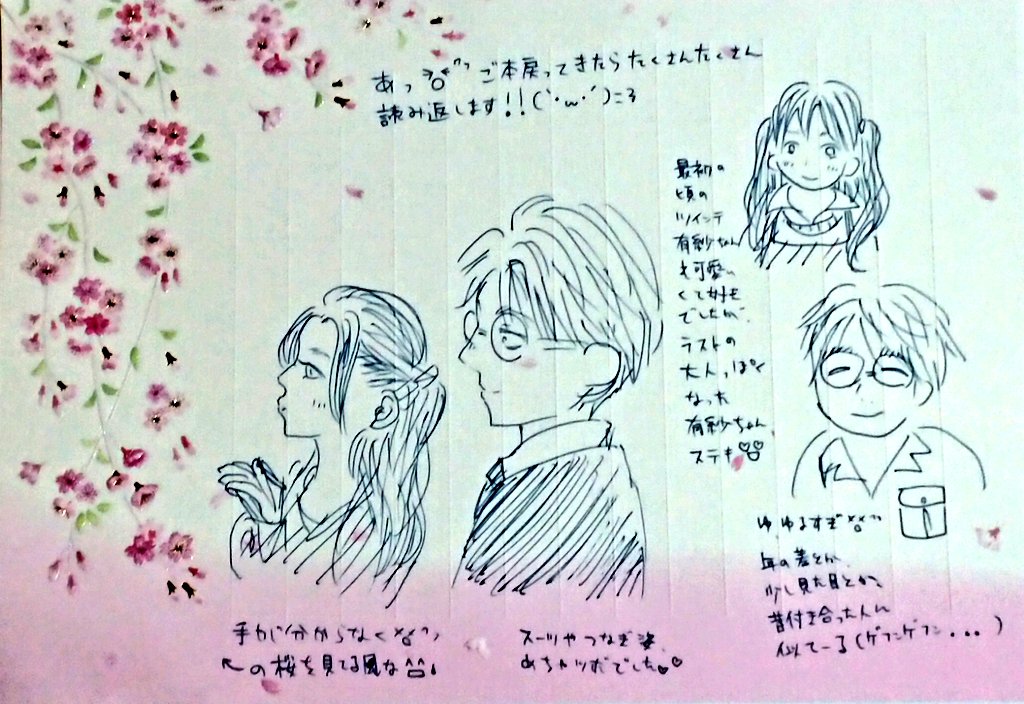 あっ ご本戻ってきたらたくさんたくさん
読み返します!!(`・ω・´)=3
最初の
頃の
ツインテ
有紗ちゃん
も可愛い
くて好き
でしたが、
ラストの
大人っぽく
なった
有紗ちゃん
ステキ♡♡
ゆ、ゆるすぎ
年の差とか、
少し見た目とか、
昔付き合った人に
似てーる(ゲフンゲフン...)
手が分からなく
←の桜を見てる風な
スーツやつなぎ姿、
めちゃツボでした♡♡